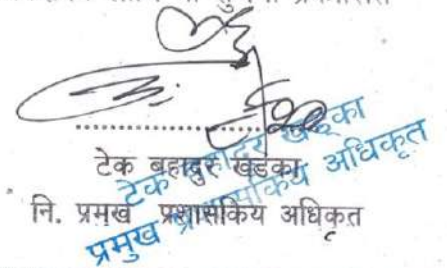 टेक बहादुर खडका
नि. प्रमुख प्रशासकिय अधिकृत
टेक बहादुर खड्का
प्रमुख प्रशासकिय अधिकृत